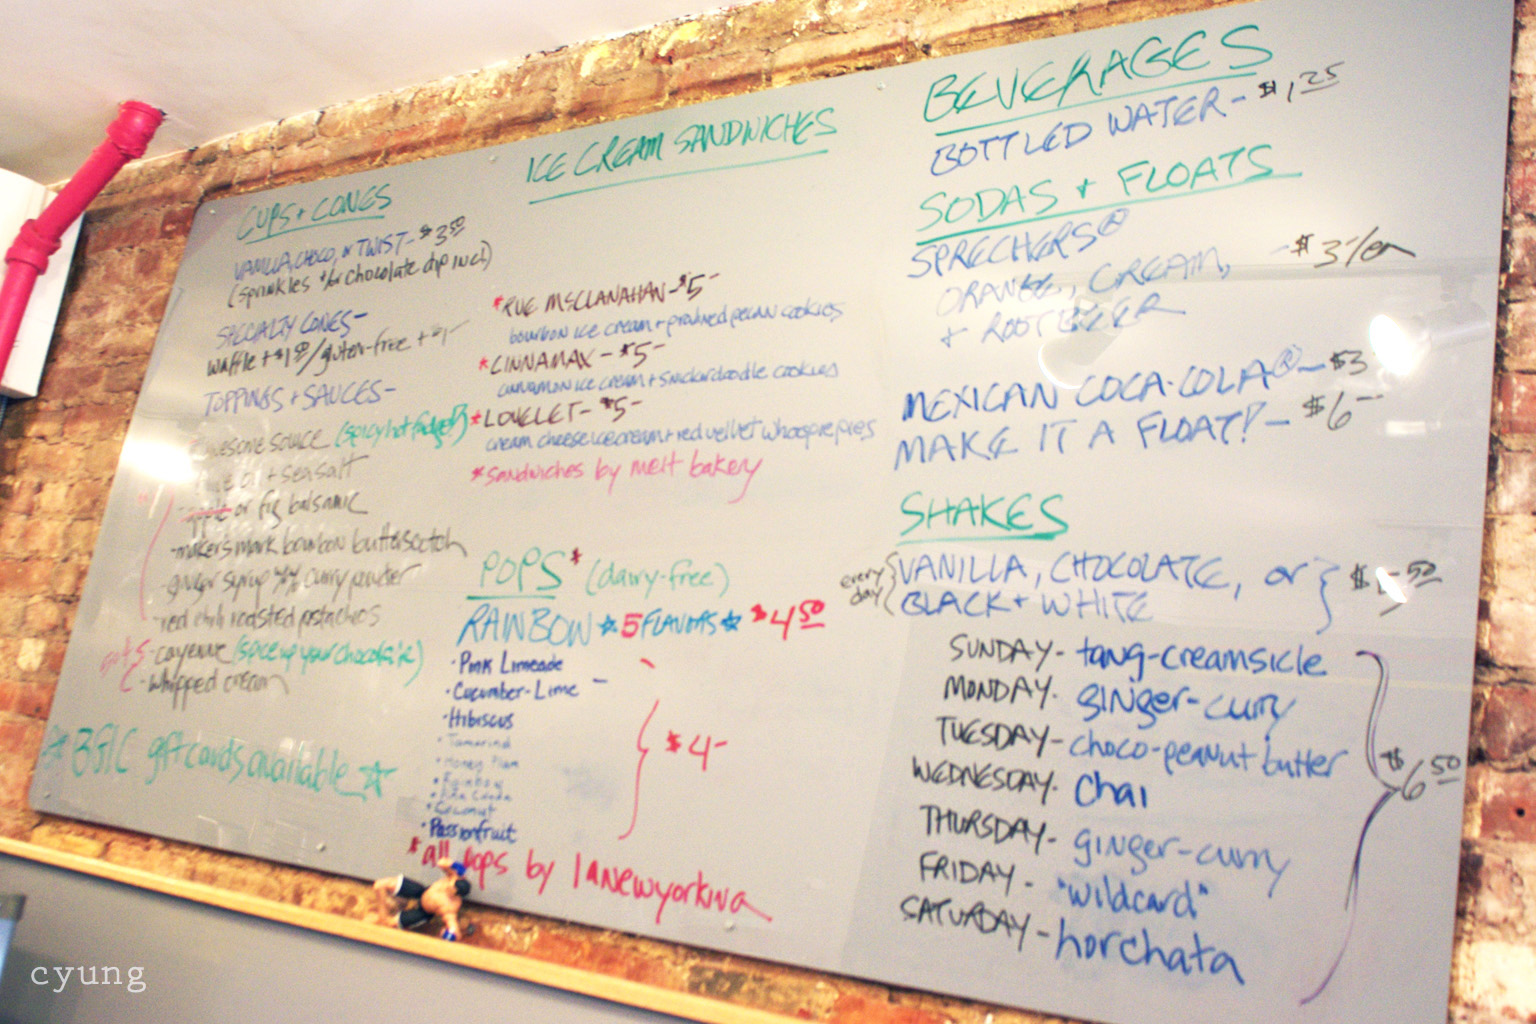 CUPS + CONES
VANILLA, CHOCO, or TWIST- $3.50
(sprinkles +/or chocolate dip incl)
SPECIALTY CONES-
waffle + $1.00 / gluten-free + $1-
TOPPINGS + SAUCES-
awesome sauce (spicy hot fudge!)
oil + sea salt
apple or fig balsamic
-makers mark bourbon butterscotch
-ginger syrup w/ curry powder
-red chili roasted pistachios
-cayenne (spice up your chocolate)
-whipped cream
BGIC gift cards available
ICE CREAM SANDWICHES
*RUE MSCLANAHAN-$5-
bourbon ice cream + pralined pecan cookies
*CINNAMAX-$5-
cinnamon ice cream + snickerdoodle cookies
*LOVELET-$5-
cream cheese ice cream + red velvet whoopie pies
*sandwiches by melt bakery
POPS* (dairy-free)
RAINBOW ☆ 5 FLAVORS ☆ $4.50
·Pink Limeade
·Cucumber-Lime -
·Hibiscus
·Tamarind
·Coconut
·Passionfruit
$4-
*all pops by lanewyorkina
BEVERAGES
BOTTLED WATER- $1.25
SODAS + FLOATS
SPRECHERS® - $3-/ea
ORANGE, CREAM,
+ ROOT BEER
MEXICAN COCA-COLA®-$3
MAKE IT A FLOAT!-$6-
SHAKES
every day { VANILLA, CHOCOLATE, or
BLACK + WHITE
SUNDAY- tang-creamsicle
MONDAY- ginger-curry
TUESDAY- choco-peanut butter
WEDNESDAY- chai
THURSDAY- ginger-curry
FRIDAY- "wildcard"
SATURDAY- horchata
$6.50
cyung